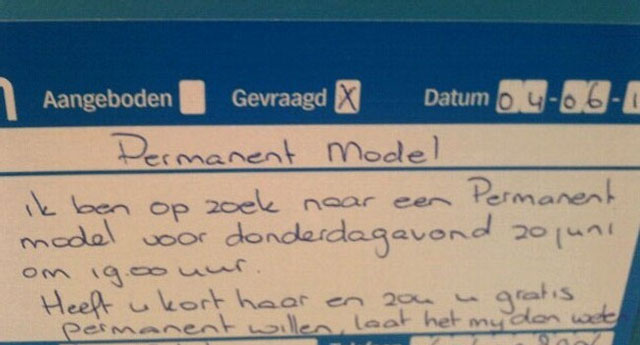 Aangeboden Gevraagd X Datum 04-06-1
Permanent Model
ik ben op zoek naar een Permanent
model voor donderdagavond 20 juni
om 19.00 uur.
Heeft u kort haar en zou u gratis
permanent willen, laat het mij dan weten